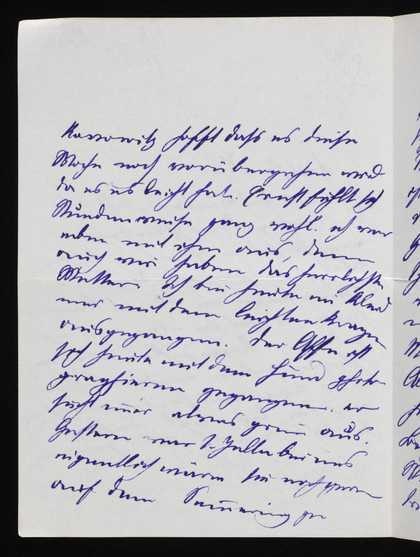 Karrowitz hofft dass es diese
Woche noch vorübergehen wird
da er es leicht hat. Ernst fühlt sich
Stundenweise ganz wohl. ich war
eben mit ihm aus, denn
auch wir haben das herrlichste
Wetter. Ich bin heute im Kleid
nur mit dem leichten Kragen
ausgegangen. Der Affe ist
sich heute mit dem Hund photo-
graphieren gegangen. er
sieht immer etwas grün aus.
Gestern war bei uns
eigentlich wären sie noch gern
auf dem Semmering